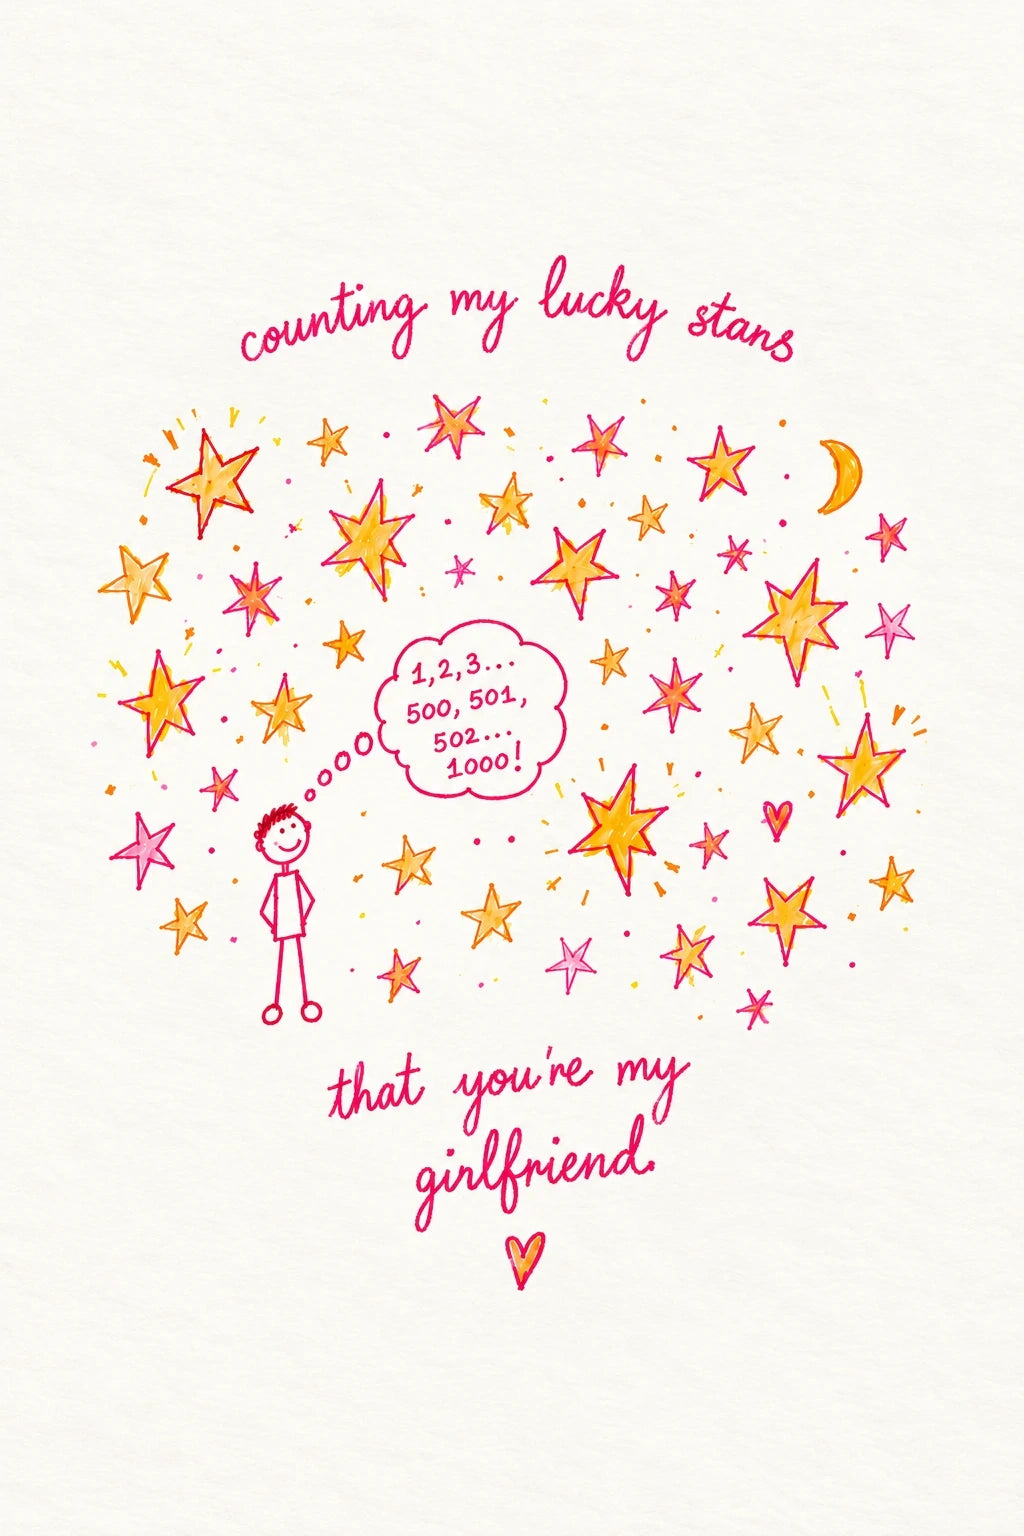 counting my lucky stars
1,2,3...
500, 501,
502...
1000!
that you're my
girlfriend.